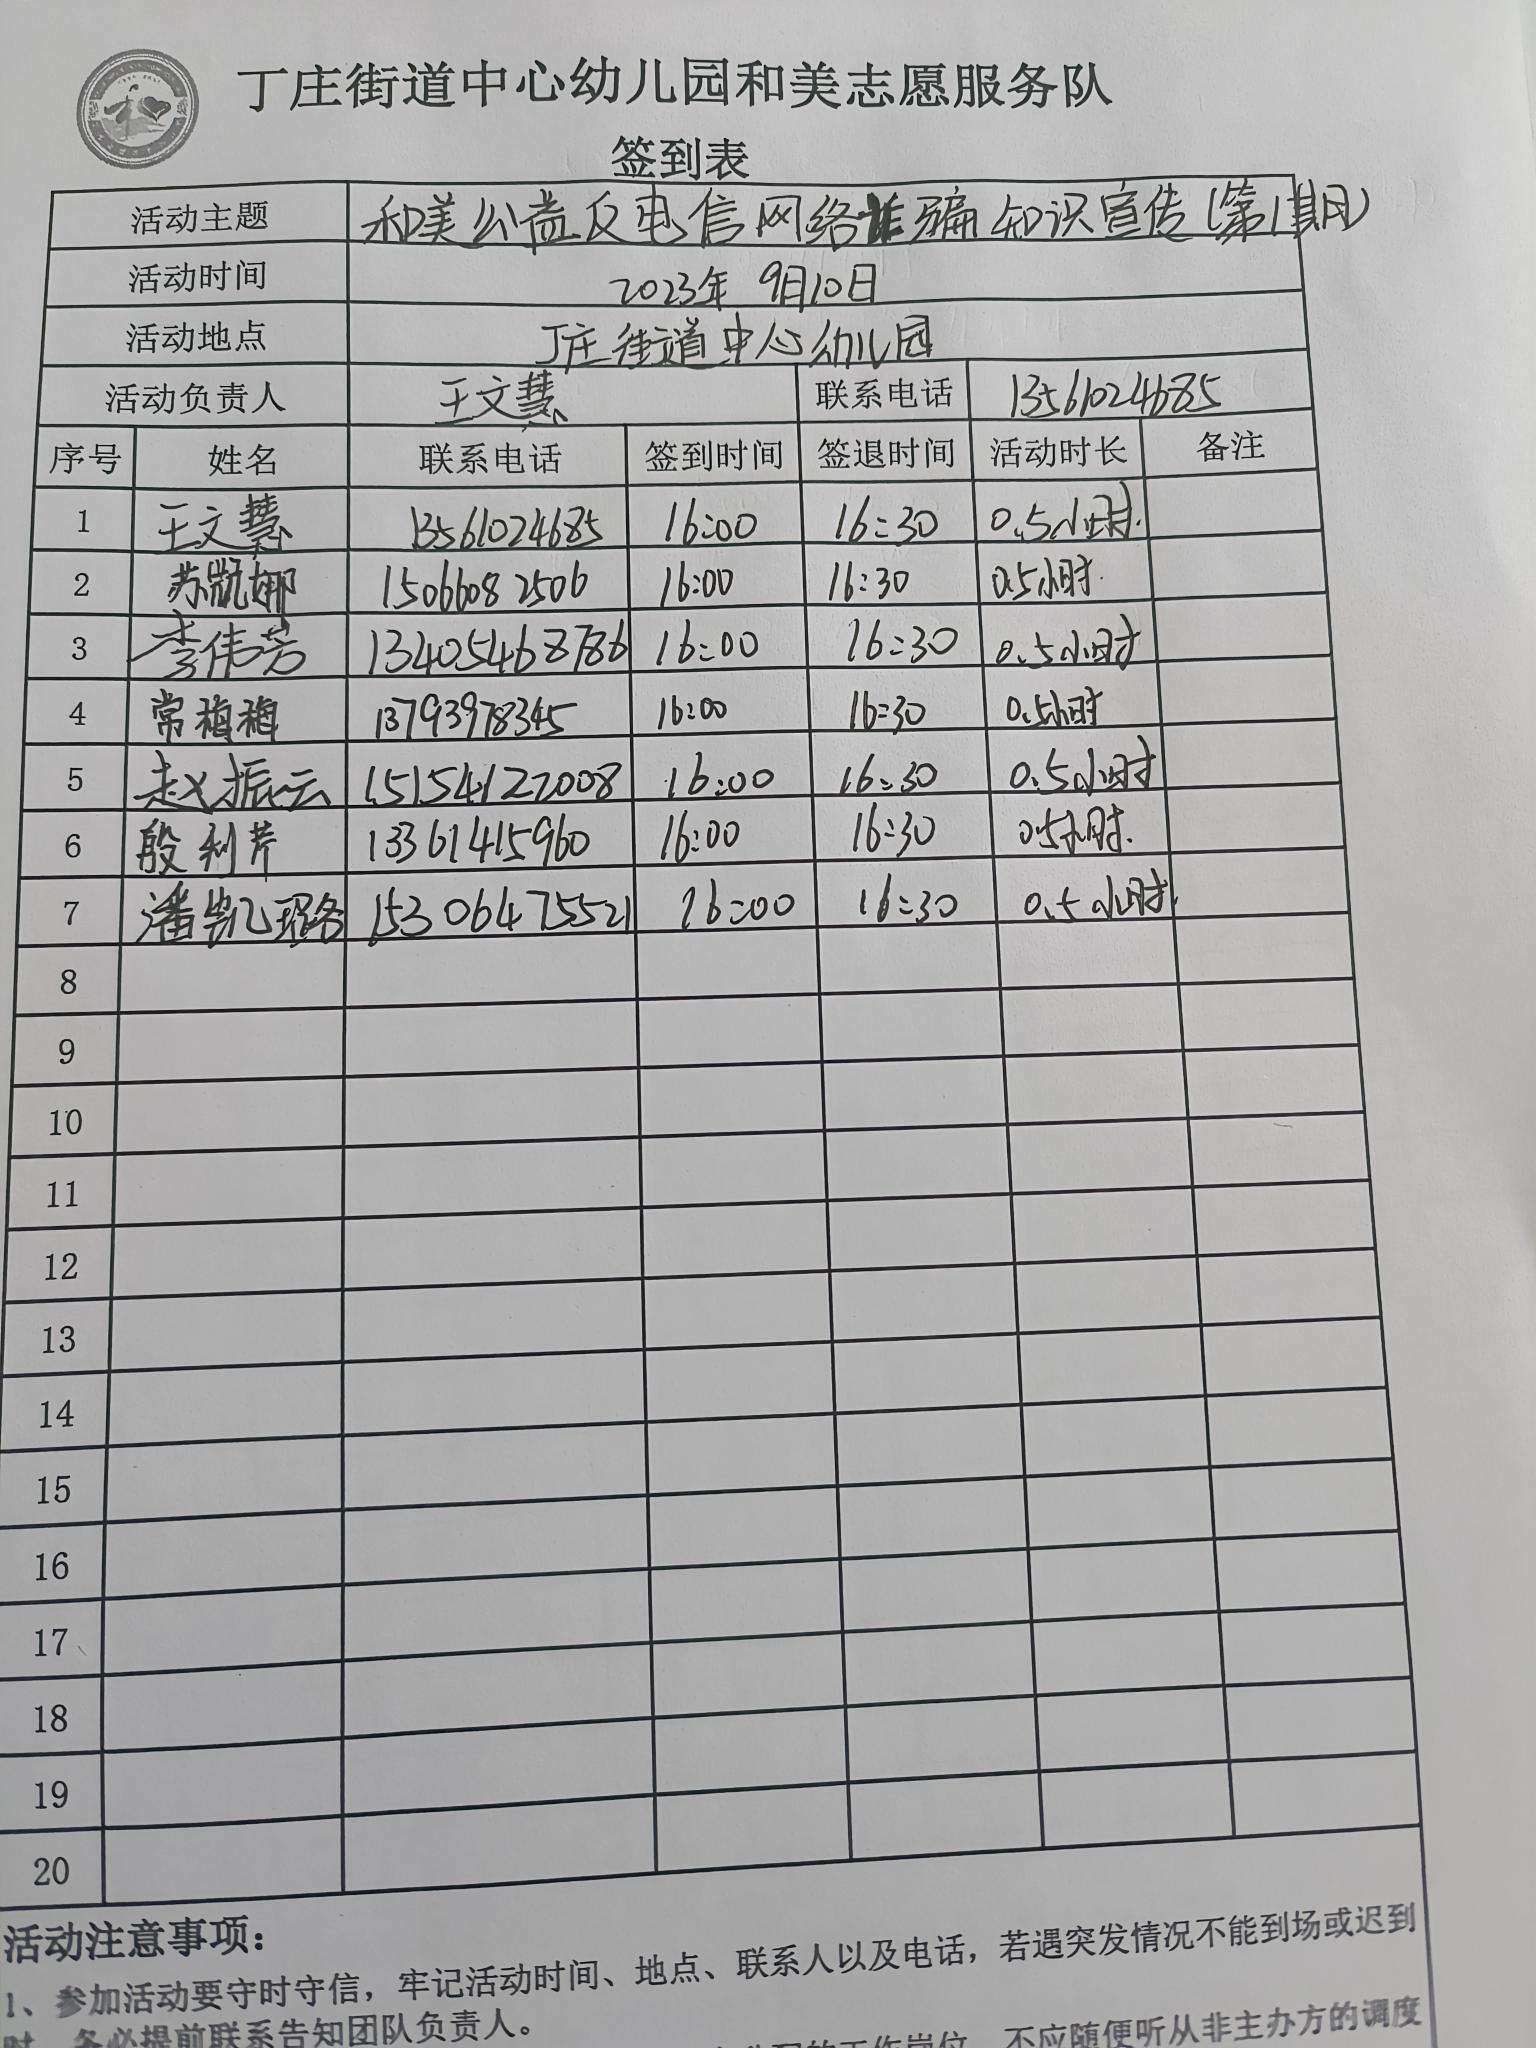 丁庄街道中心幼儿园和美志愿服务队
签到表
活动主题 和美公益反电信网络诈骗知识宣传(第1期)
活动时间 2023年 9月10日
活动地点 丁庄街道中心幼儿园
活动负责人 王文慧 联系电话 13561024685
序号 姓名 联系电话 签到时间 签退时间 活动时长 备注
1 王文慧 13561024685 16:00 16:30 0.5小时.
2 苏凯娜 15066082506 16:00 16:30 0.5小时.
3 李伟芳 13405468786 16:00 16:30 0.5小时
4 常梅梅 13793978345 16:00 16:30 0.5小时
5 赵振云 15154122008 16:00 16:30 0.5小时
6 殷利芹 13361415960 16:00 16:30 0.5小时.
7 潘凯璐 15306475521 16:00 16:30 0.5小时.
8
9
10
11
12
13
14
15
16
17
18
19
20
活动注意事项：
1、参加活动要守时守信，牢记活动时间、地点、联系人以及电话，若遇突发情况不能到场或迟到
时，务必提前联系告知团队负责人。
的工作岗位，不应随便听从非主办方的调度